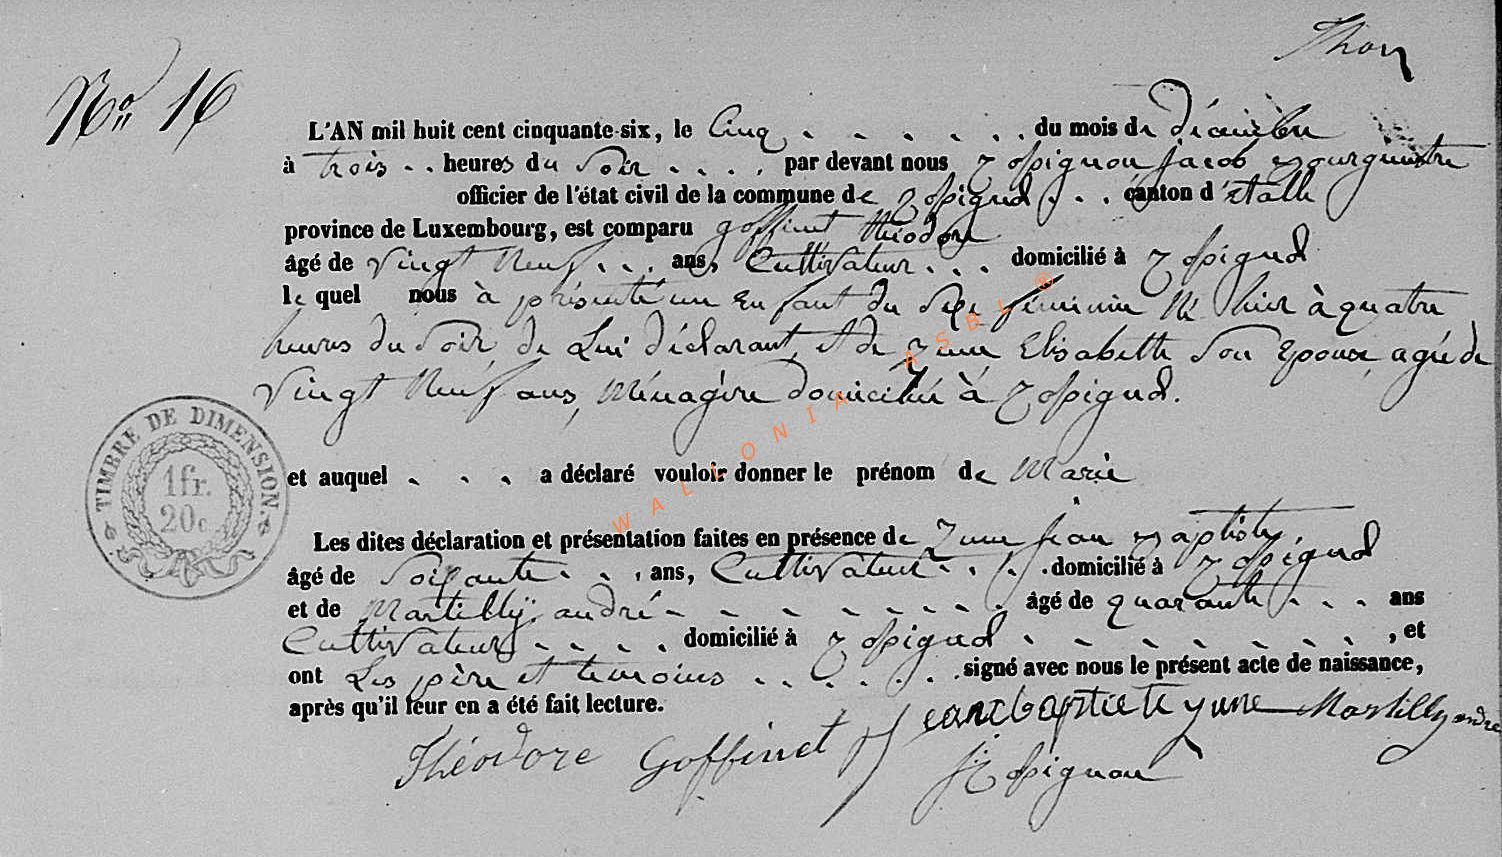 Thon
No 16
L'AN mil huit cent cinquante-six, le Cinq . . . . . . du mois de décembre
à trois . . heures du Soir . . . . par devant nous Rossignon jacob Bourgmestre
officier de l'état civil de la commune de Rossignol . . . canton d'Etalle
province de Luxembourg, est comparu goffinet théodore
âgé de vingt Neuf . . . ans, Cultivateur . . . domicilié à Rossignol
le quel nous à présenté un Enfant du Sexe féminin Né hier à quatre
heures du Soir, de Lui déclarant, et de June Elisabeth Son Epouse, agée de
vingt Neuf ans, Ménagère domicilié à Rossignol.
et auquel . . . a déclaré vouloir donner le prénom de Marie
Les dites déclaration et présentation faites en présence de June jean Baptiste
âgé de Soixante . . . ans, Cultivateur . . . . domicilié à Rossignol
et de Martilly andré - - - - - - - - . âgé de quarante . . . ans
Cultivateur . . . . . domicilié à Rossignol . - - - - - - - , et
ont Les père et temoins . . . . . . . signé avec nous le présent acte de naissance,
après qu'il leur en a été fait lecture.
Théodore Goffinet jeanbaptiete june Martilly andré
J Rossignon
TIMBRE DE DIMENSION.
1fr.
20c
WALLONIA ASBL ®